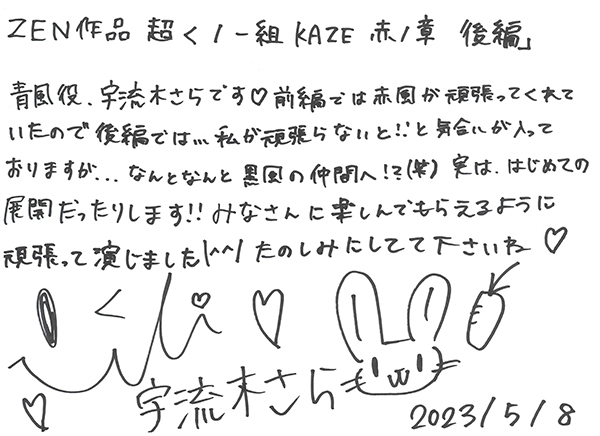 ZEN作品 超くノ一組KAZE 赤ノ章 後編」
青風役、宇流木さらです♡前編では赤風が頑張ってくれて
いたので後編では…私が頑張らないと!!と気合いが入って
おりますが…なんとなんと黒風の仲間へ!?(笑)実は、はじめての
展開だったりします!!みなさんに楽しんでもらえるように
頑張って演じました(^^)たのしみにしてて下さいね♡
宇流木さら
2023/5/8